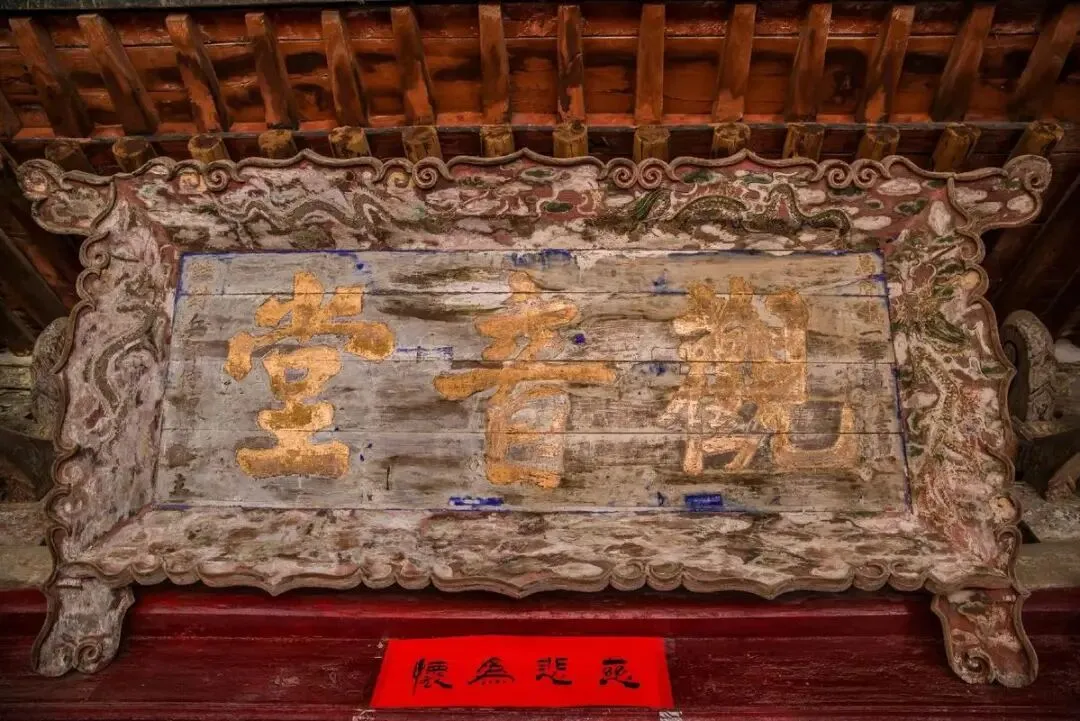 觀音堂
慈悲為懷